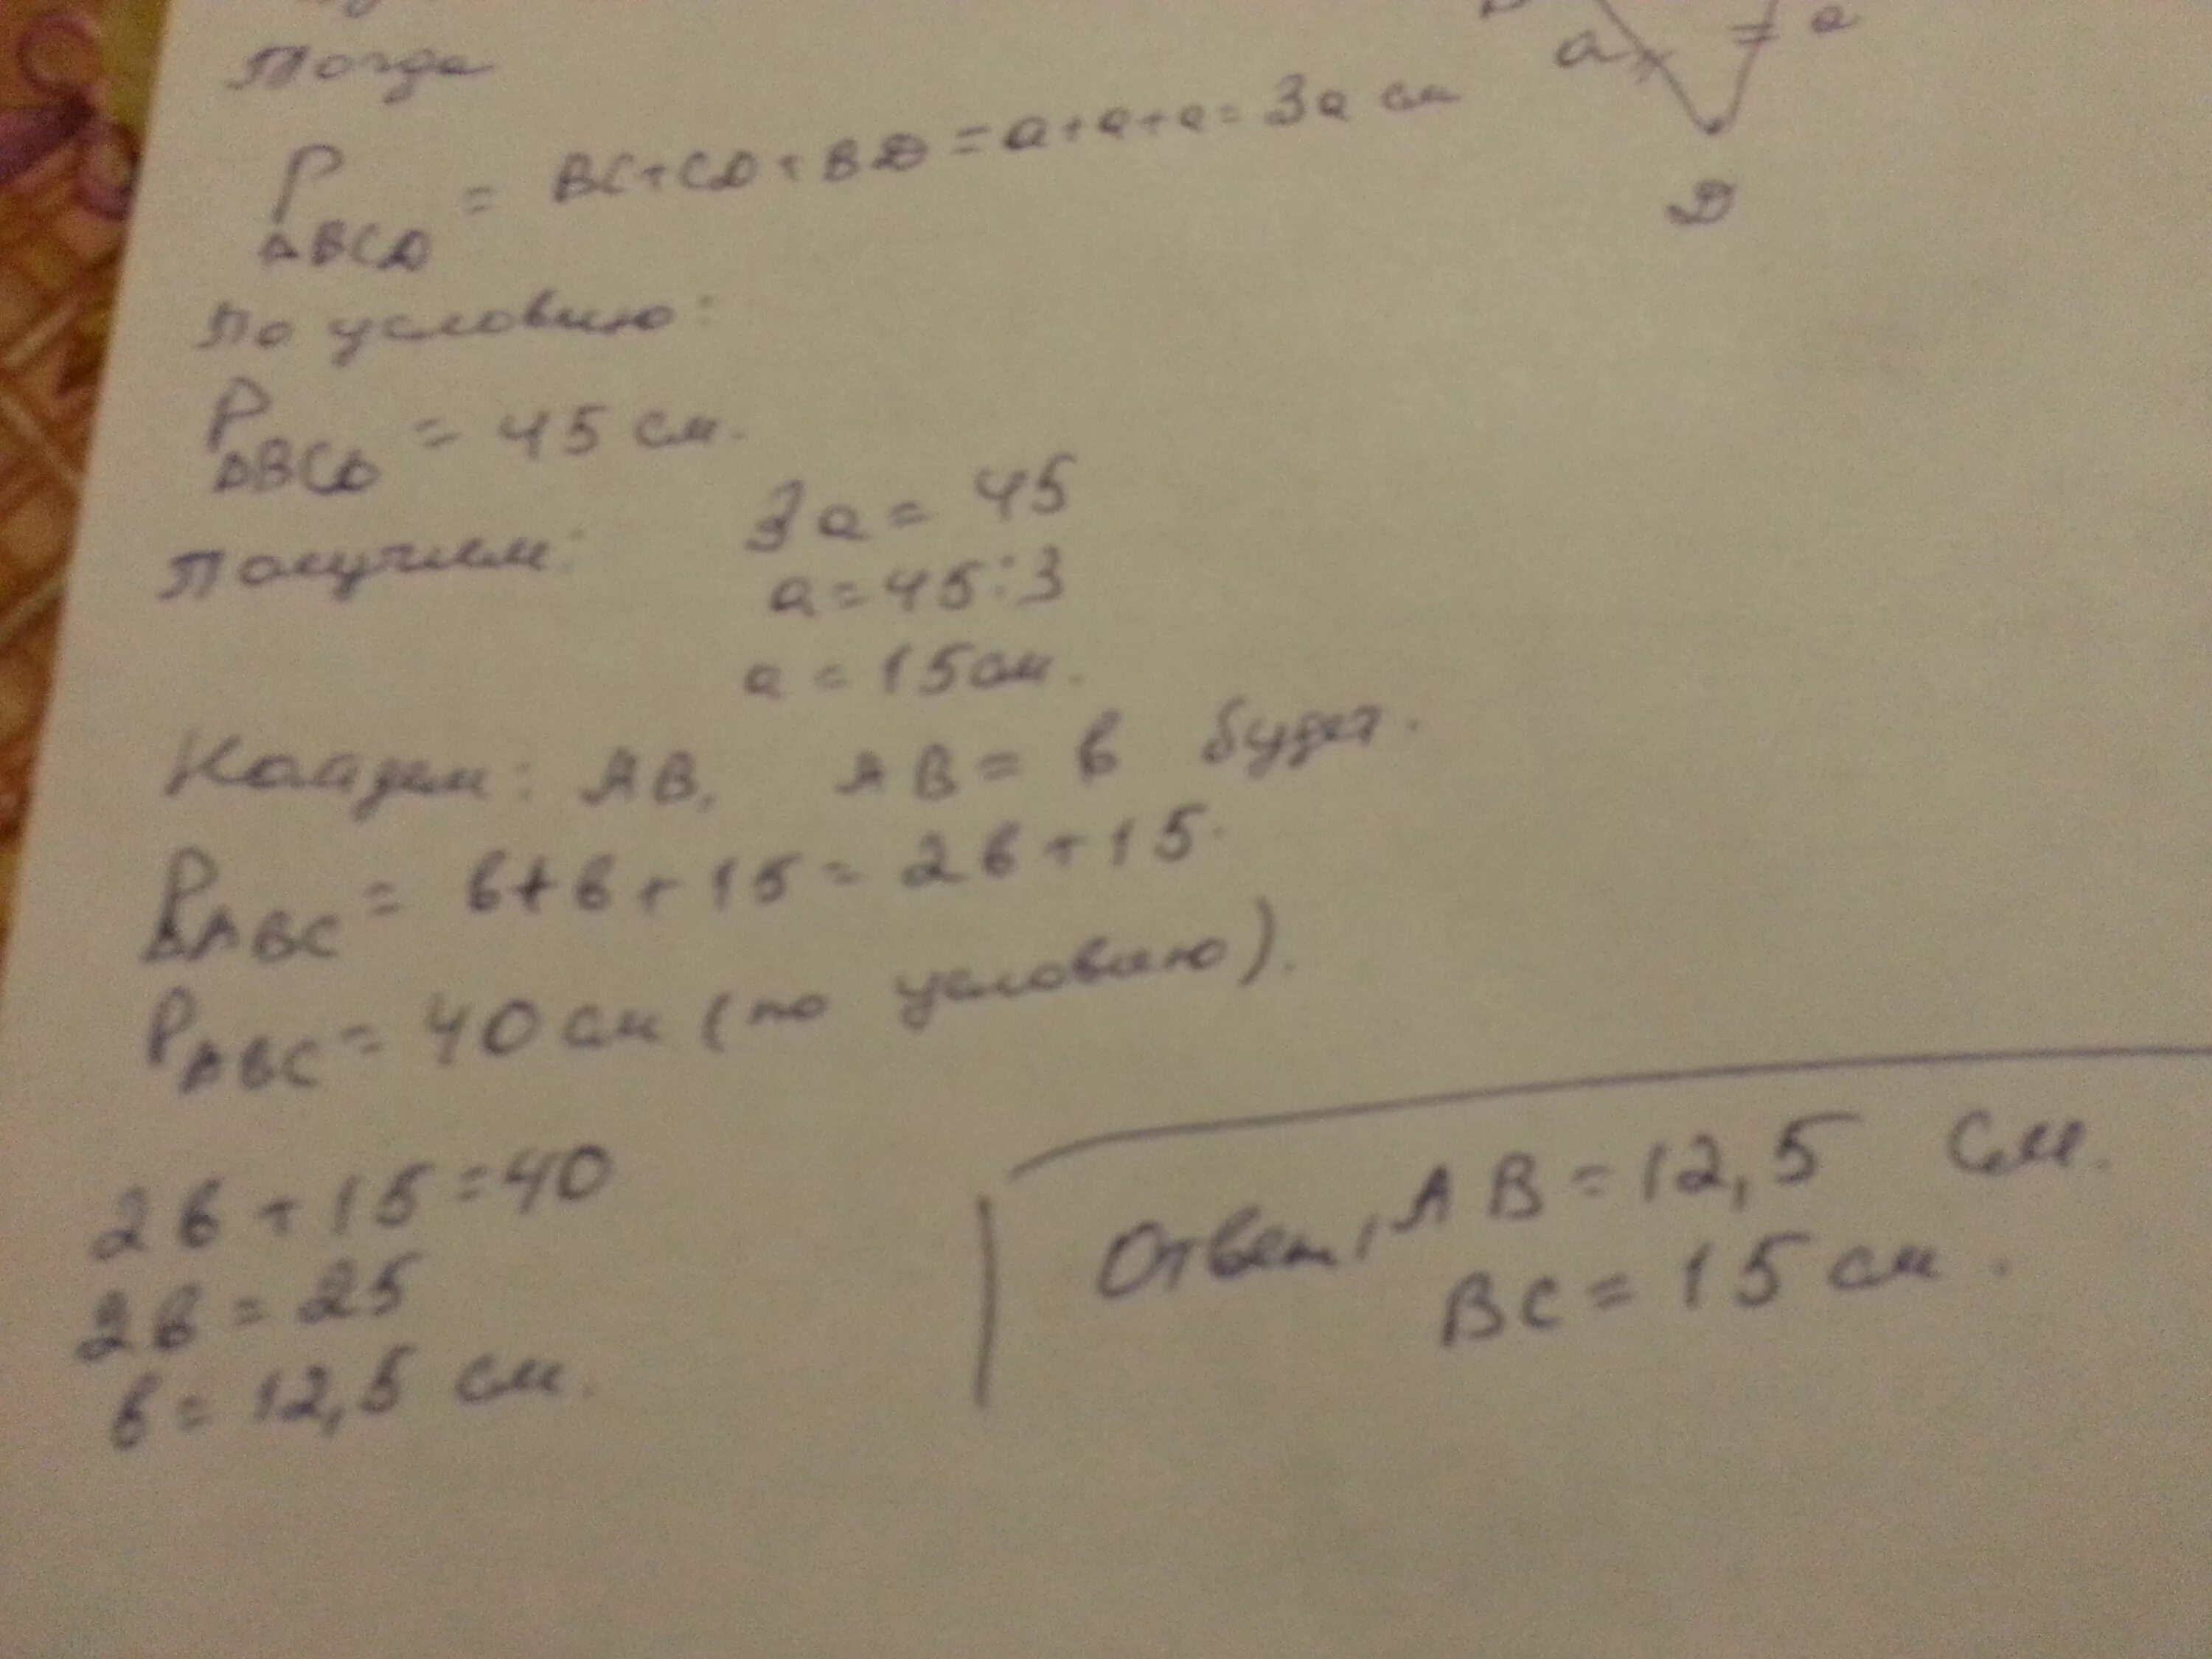 Тогда
a
a
P ΔBCD = BC+CD+BD = a+a+a = 3a см
D
По условию:
P ΔBCD = 45 см.
Получим:
3a = 45
a = 45:3
a = 15 см.
Найдем: AB, AB = в будет.
P ΔABC = в+в+15 = 2в+15.
P ABC = 40 см (по условию).
2в + 15 = 40
2в = 25
в = 12,5 см.
Ответ, AB = 12,5 см.
BC = 15 см.